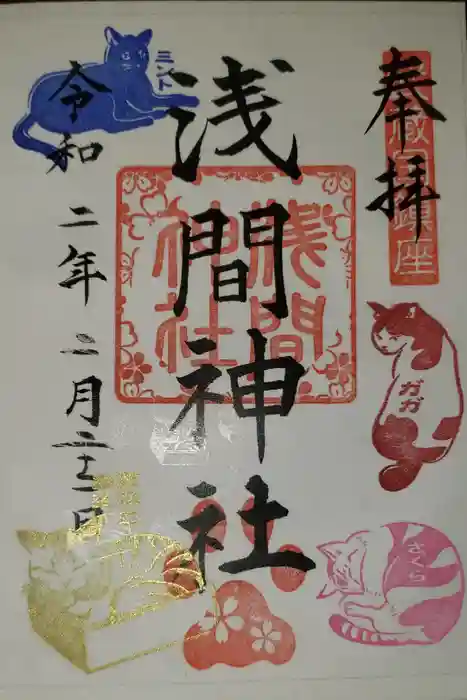 奉拝
武蔵国鎮座
ガガ
さくら
浅間神社
浅間
神社
ミント
令和二年二月二十二日